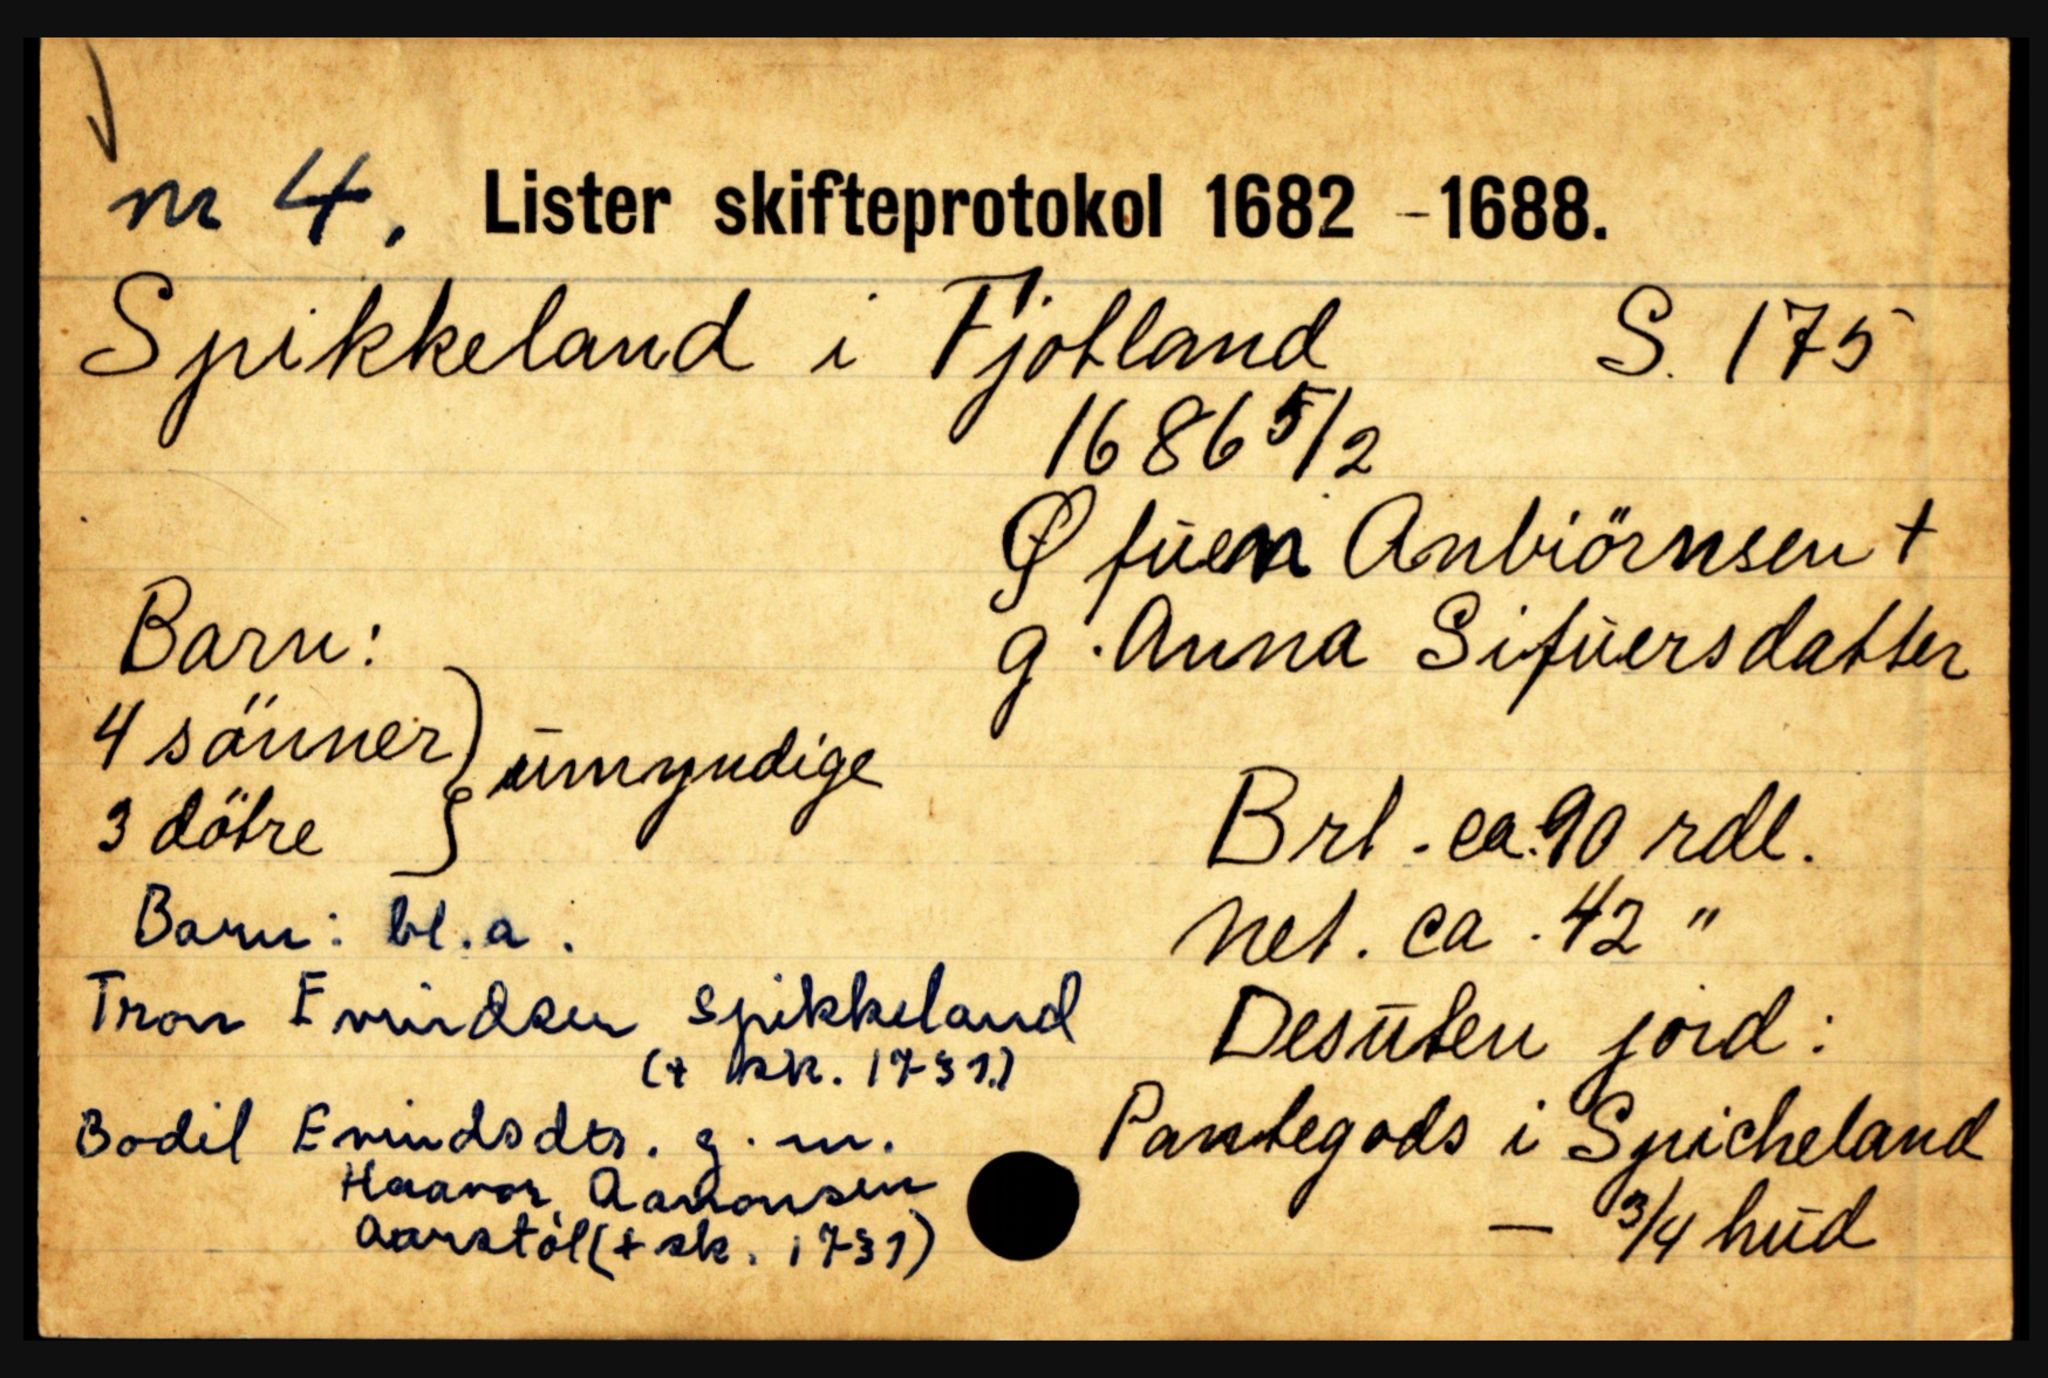 nr 4. Lister skifteprotokol 1682 - 1688.
Spikkeland i Fjotland S. 175
1686 5/2
Øfuen Anbiörnsen +
g. Anna Sifuersdatter
Barn:
4 sönner
3 dötre
umyndige
Brt. ca. 90 rdl.
net. ca. 42 "
Desuten jord:
Pantegods i Spicheland
— 3/4 hud
Barn: bl.a.
Tron Evindsen Spikkeland
(+ sk. 1731.)
Bodil Evindsdtr. g. m.
Haavor Aanonsen
Aarstöl (+ sk. 1731)